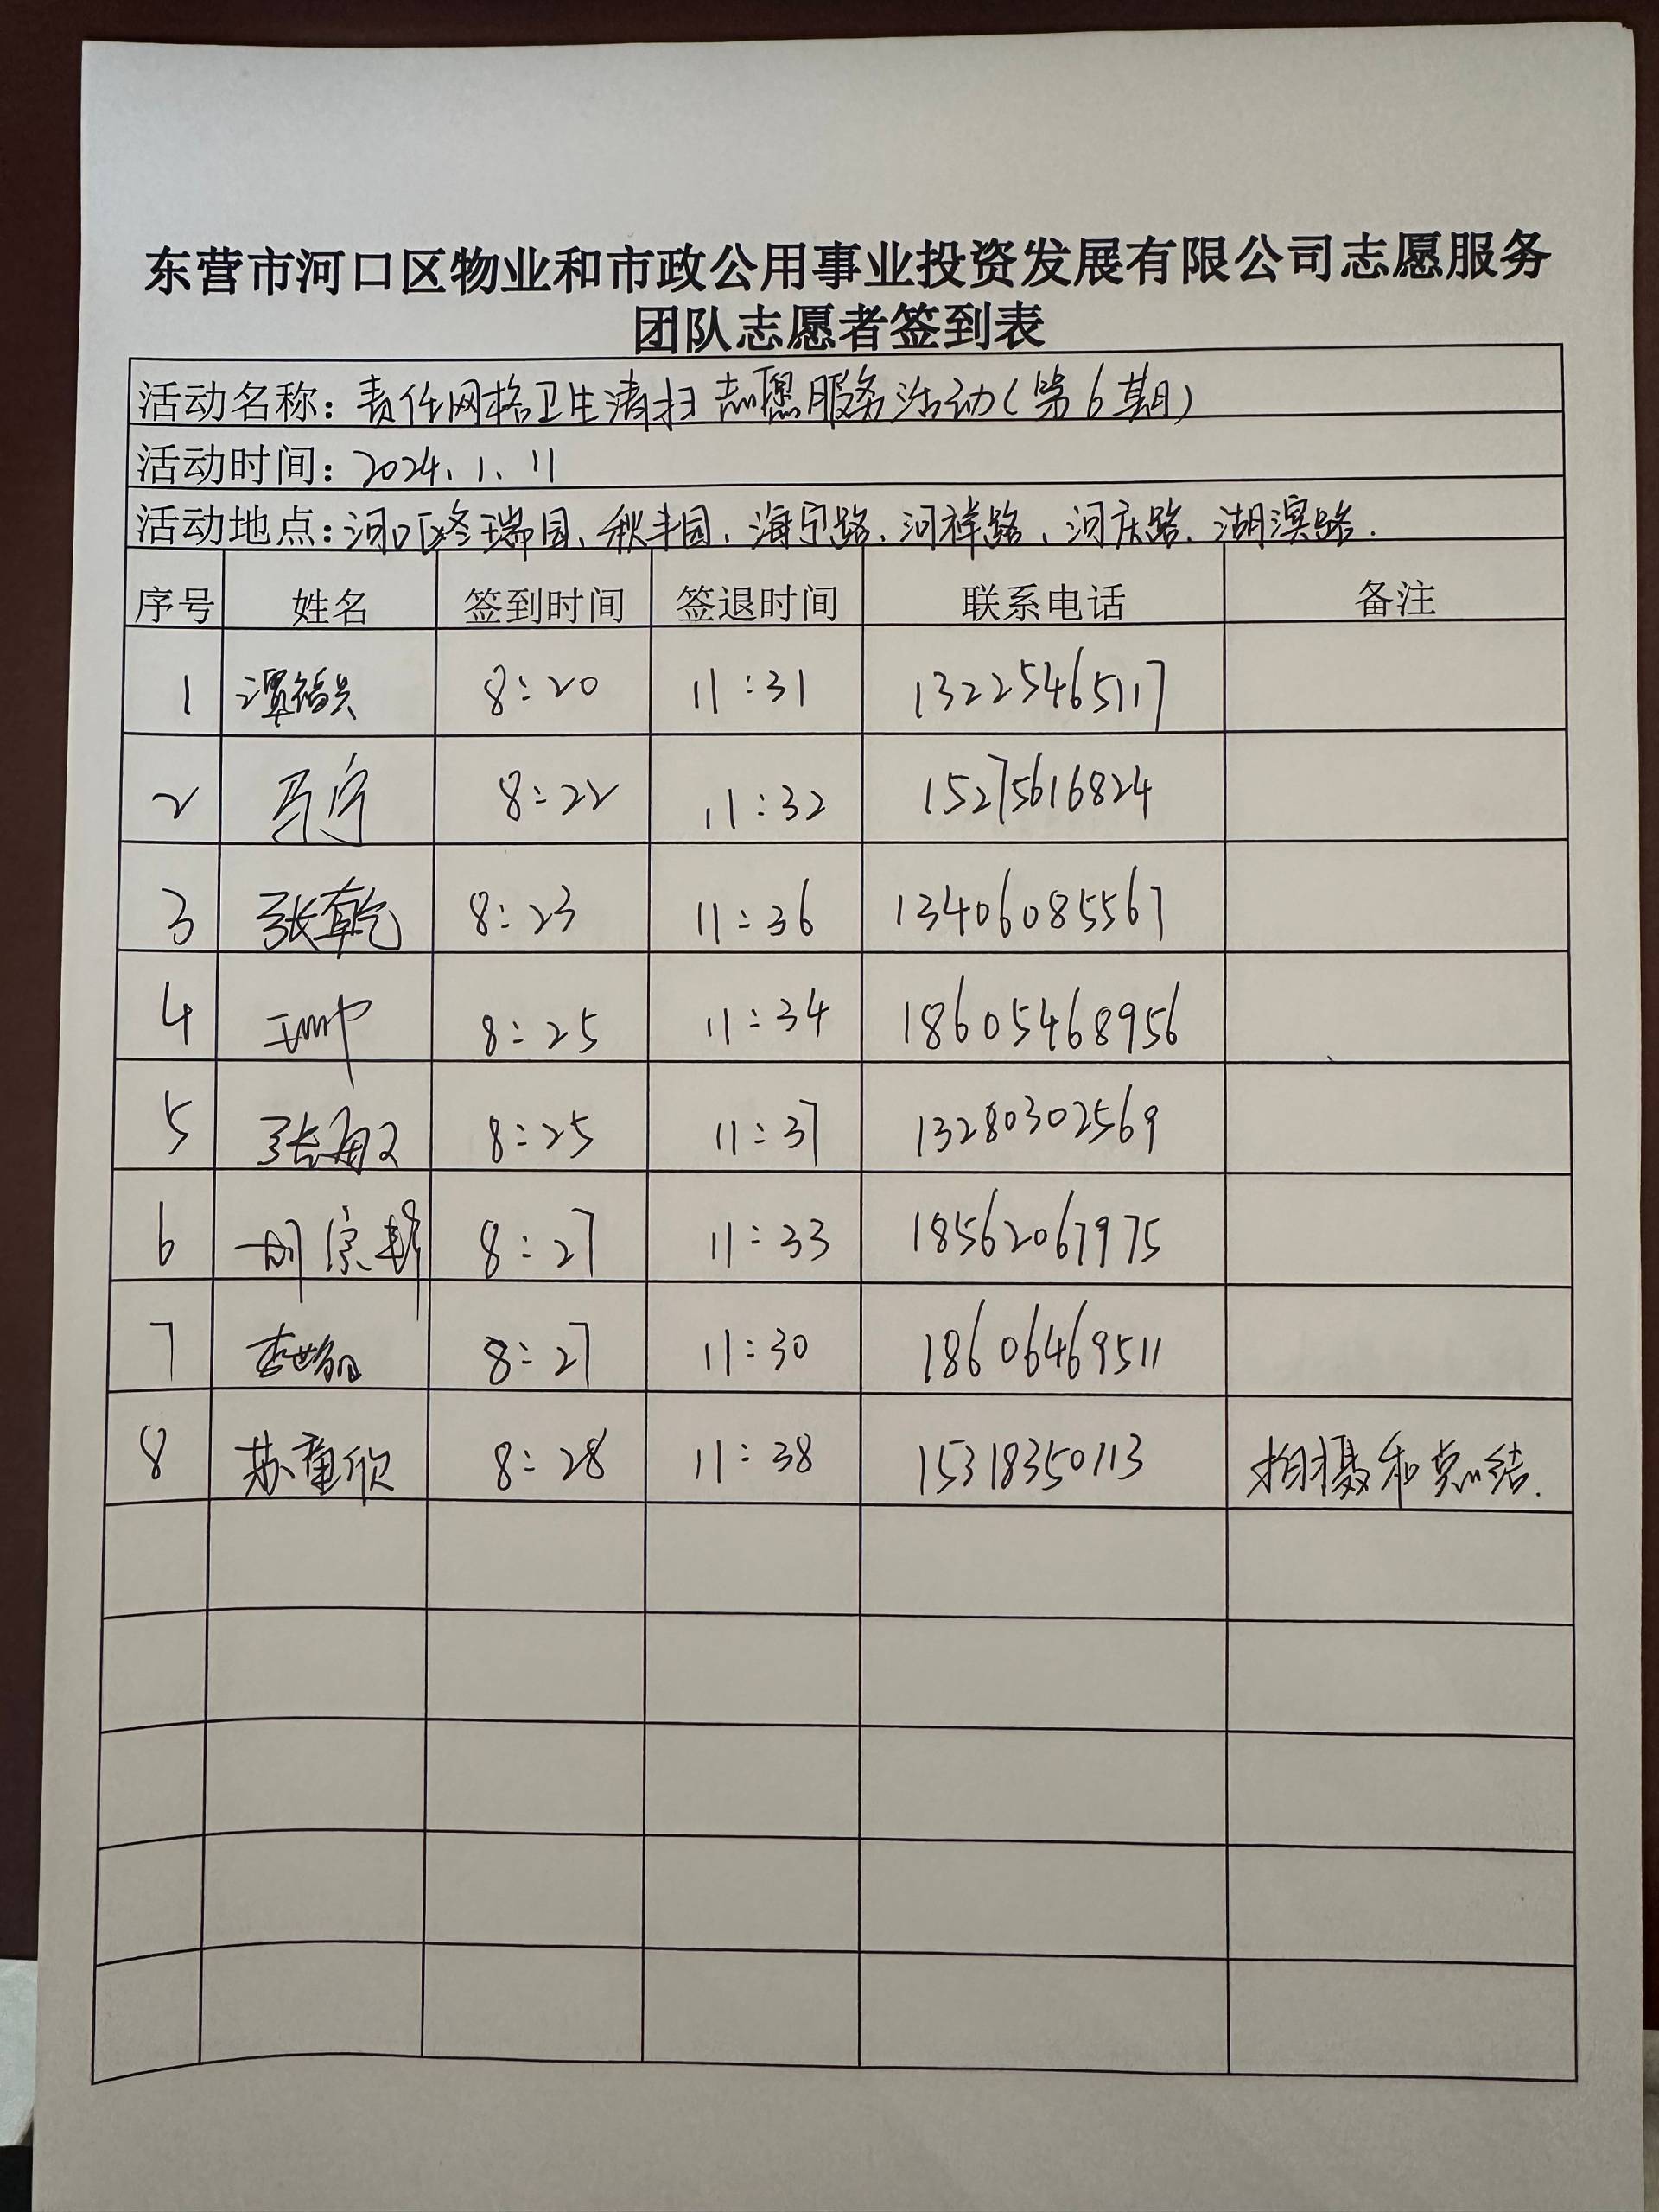 东营市河口区物业和市政公用事业投资发展有限公司志愿服务
团队志愿者签到表
活动名称：责任网格卫生清扫志愿服务活动（第6期）
活动时间：2024.1.11
活动地点：河口区冬瑞园、秋丰园、海宁路、河祥路、河庆路、湖滨路.
序号 姓名 签到时间 签退时间 联系电话 备注
1 谭福兴 8:20 11:31 13225465117
2 8:22 11:32 15275616824
3 张乾 8:23 11:36 13406085567
4 8:25 11:34 18605468956
5 张海义 8:25 11:37 13280302569
6 8:27 11:33 18562067975
7 8:27 11:30 18606469511
8 苏童欣 8:28 11:38 15318350113 拍摄和总结.